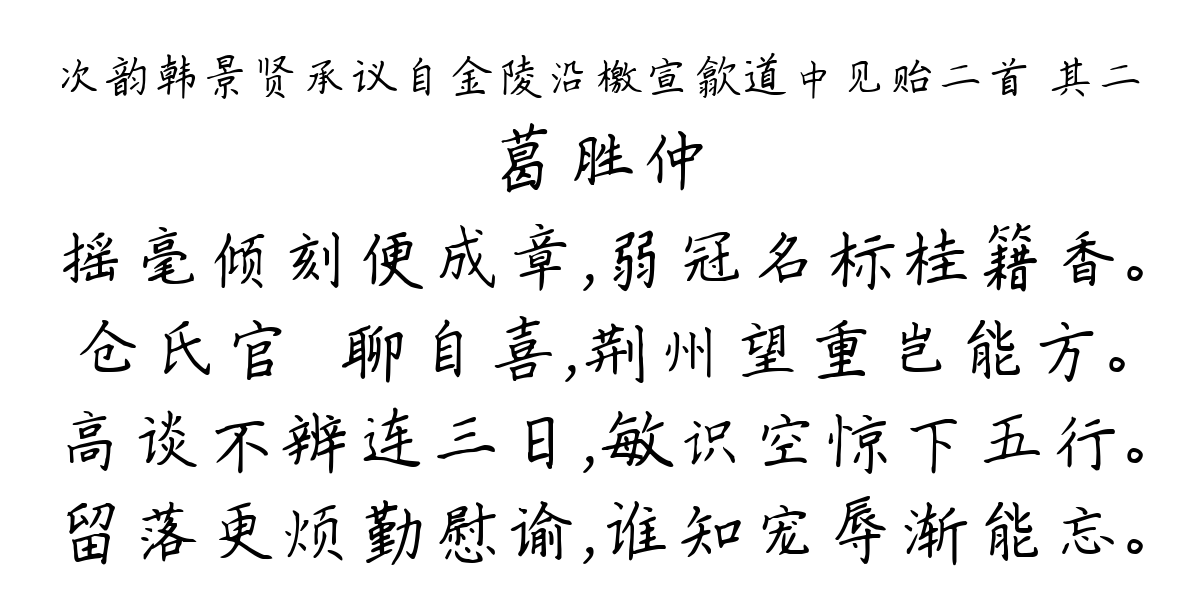 次韵韩景贤承议自金陵沿檄宣歙道中见贻二首 其二
葛胜仲
摇毫倾刻便成章,弱冠名标桂籍香。
仓氏官 聊自喜,荆州望重岂能方。
高谈不辨连三日,敏识空惊下五行。
留落更烦勤慰谕,谁知宠辱渐能忘。